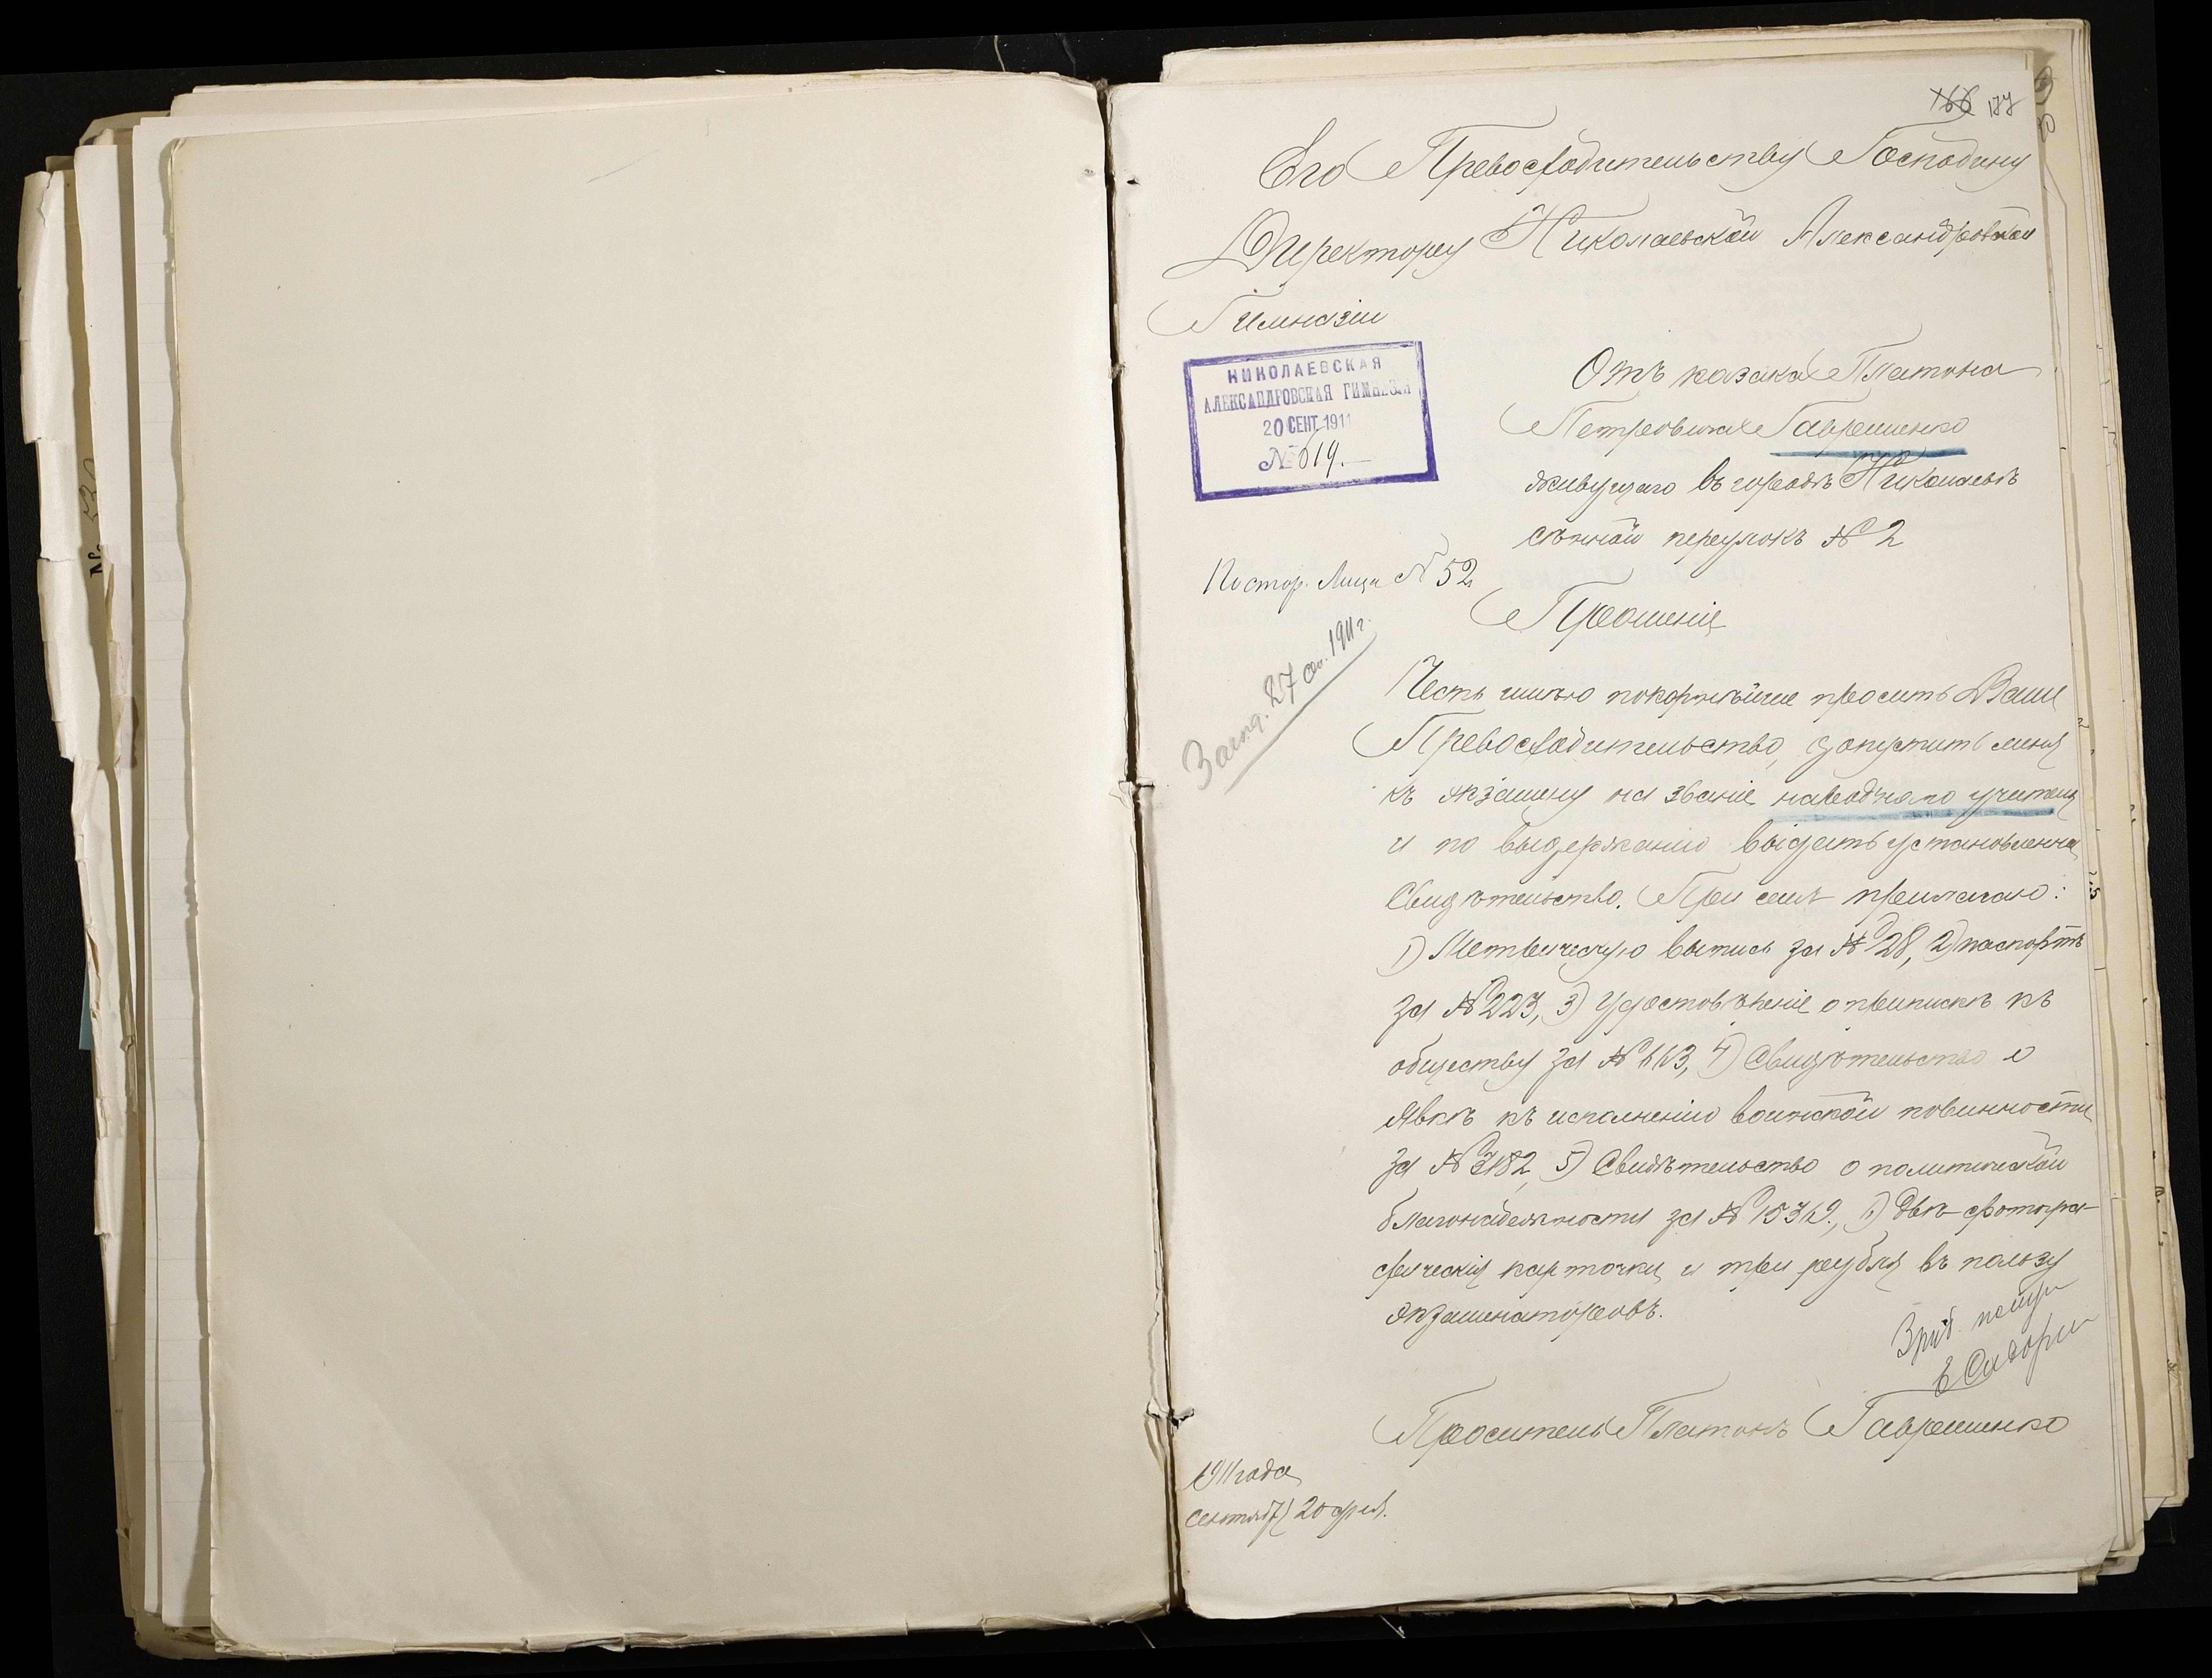 166 177
Его Превосходительству Господину
Директору Николаевской Александровской
Гимназіи
НИКОЛАЕВСКАЯ
АЛЕКСАНДРОВСКАЯ ГИМНАЗІЯ
20 СЕНТ 1911
№ 619.
Отъ казака Платона
Петровича Гаврешенко
живущаго въ городѣ Николаевѣ
сѣнной переулокъ № 2
Постор. Лица № 52
Прошеніе
27 1911 г.
Честь имѣю покорнѣйше просить Ваше
Превосходительство, допустить меня
къ экзамену на званіе народнаго учителя
и по выдержанію выдать установленное
Свидѣтельство. При семъ прилагаю:
1) Метрическую выпись за № 28, 2) паспортъ
за № 223, 3) Удостовѣреніе о припискѣ къ
обществу за № 663, 4) Свидѣтельство о
явкѣ къ исполненію воинской повинности
за № 3182, 5) Свидѣтельство о политической
благонадежности за № 15369., 6) двѣ фотогра-
фическія карточки и три рубля въ пользу
экзаменаторовъ.
Проситель Платонъ Гаврешенко
1911 года
сентября 20 дня.